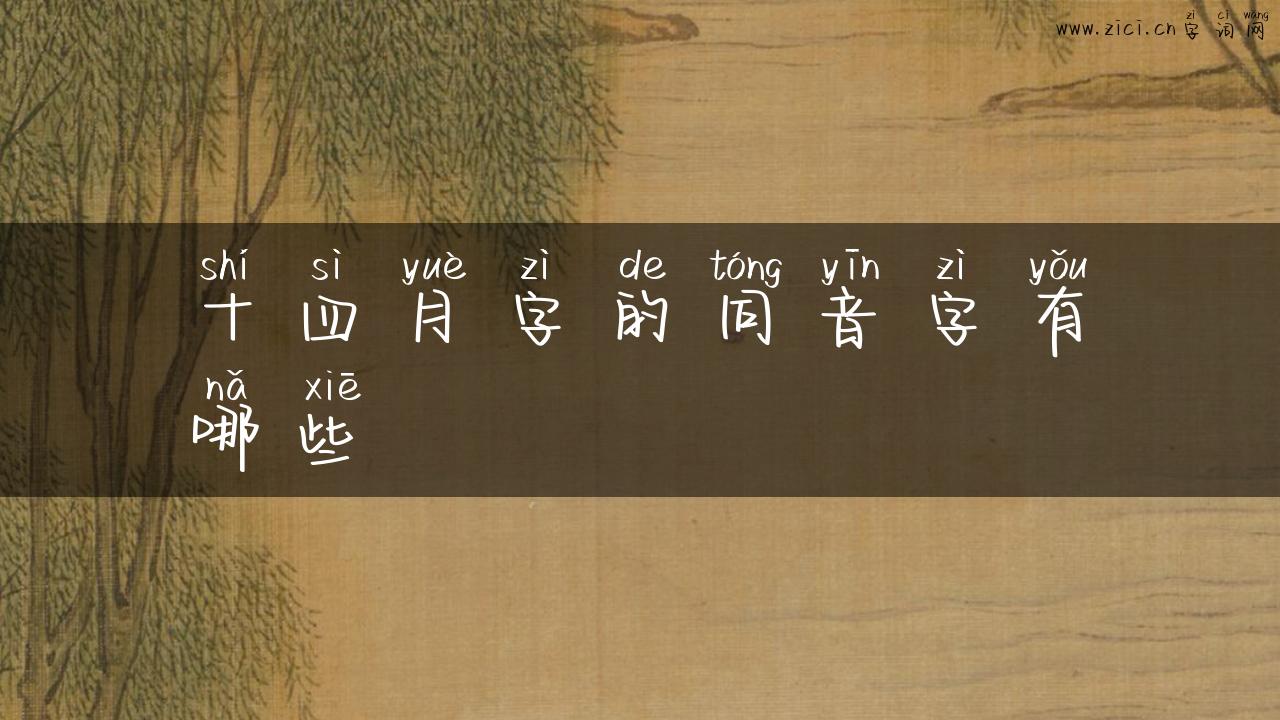 zì cí wǎng
www.zici.cn字词网
shí sì yuè zì de tóng yīn zì yǒu
十四月字的同音字有
nǎ xiē
哪些